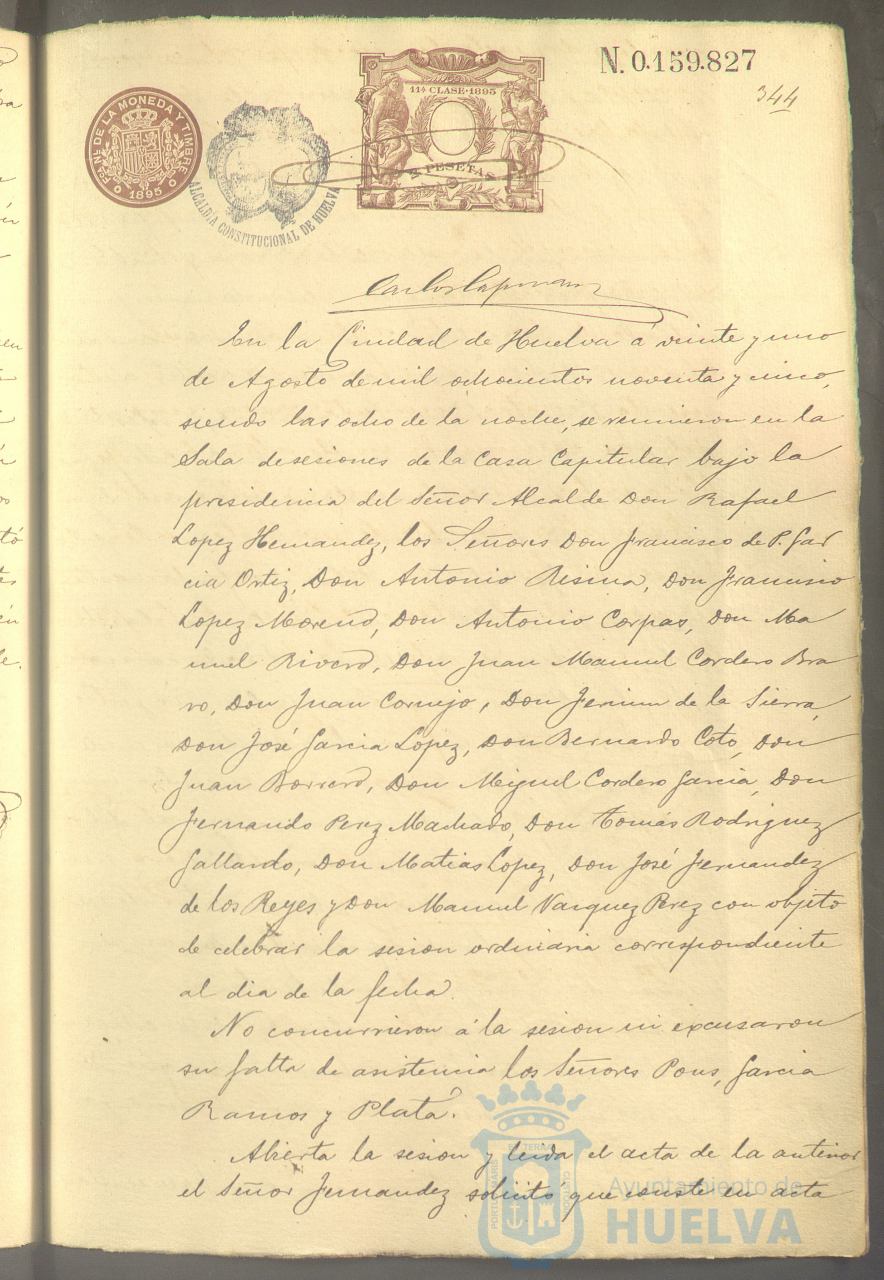 N. 0.159.827
344
FÁBª N. DE LA MONEDA Y TIMBRE
1895
ALCALDÍA CONSTITUCIONAL DE HUELVA
11ª CLASE·1895
2 PESETAS
Carlos
En la Ciudad de Huelva á veinte y uno
de Agosto de mil ochocientos noventa y cinco,
siendo las ocho de la noche, se reunieron en la
Sala de sesiones de la Casa Capitular bajo la
presidencia del Señor Alcalde Don Rafael
Lopez Hernandez, los Señores Don Francisco de P. Gar
cia Ortiz, Don Antonio Resina, Don Francisco
Lopez Moreno, Don Antonio Corpas, Don Ma
nuel Rivero, Don Juan Manuel Cordero Bra
vo, Don Juan Cornejo, Don Fermin de la Sierra,
Don José Garcia Lopez, Don Bernardo Coto, Don
Juan Borrero, Don Miguel Cordero Garcia, Don
Fernando Perez Machado, Don Tomás Rodriguez
Gallardo, Don Matias Lopez, Don José Fernandez
de los Reyes y Don Manuel Vazquez Perez con objeto
de celebrar la sesion ordinaria correspondiente
al dia de la fecha.
No concurrieron á la sesion ni excusaron
su falta de asistencia los Señores Pons, Garcia
Ramos y Plata.
Abierta la sesion y leida el acta de la anterior
el Señor Fernandez solicito que conste en acta
Ayuntamiento de
HUELVA
PORTUS MARIS
ET TERRAE
CUSTODIA